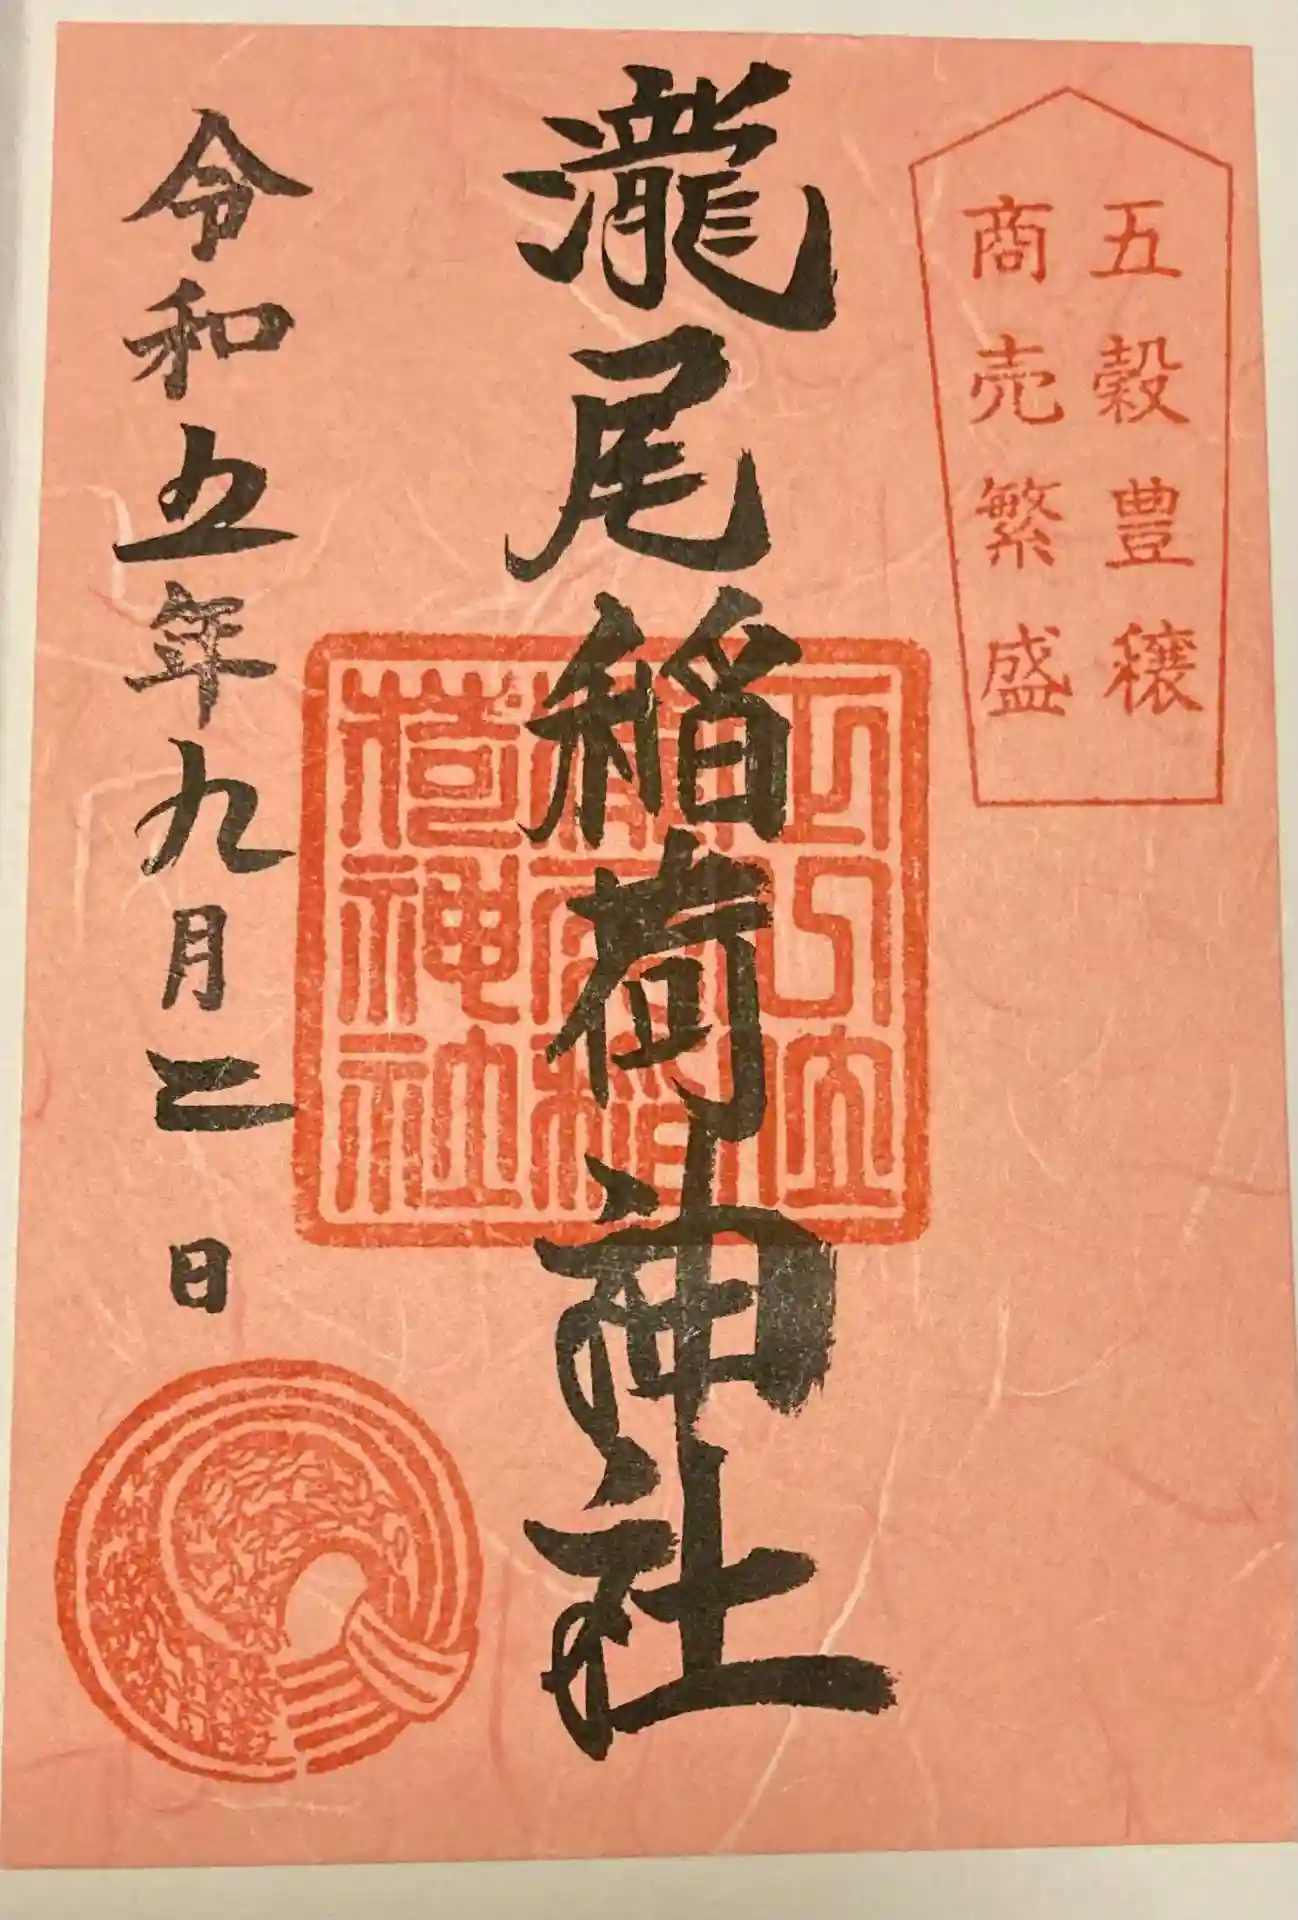 五穀豊穣
商売繁盛
瀧尾稲荷神社
荷神社
令和五年九月二日